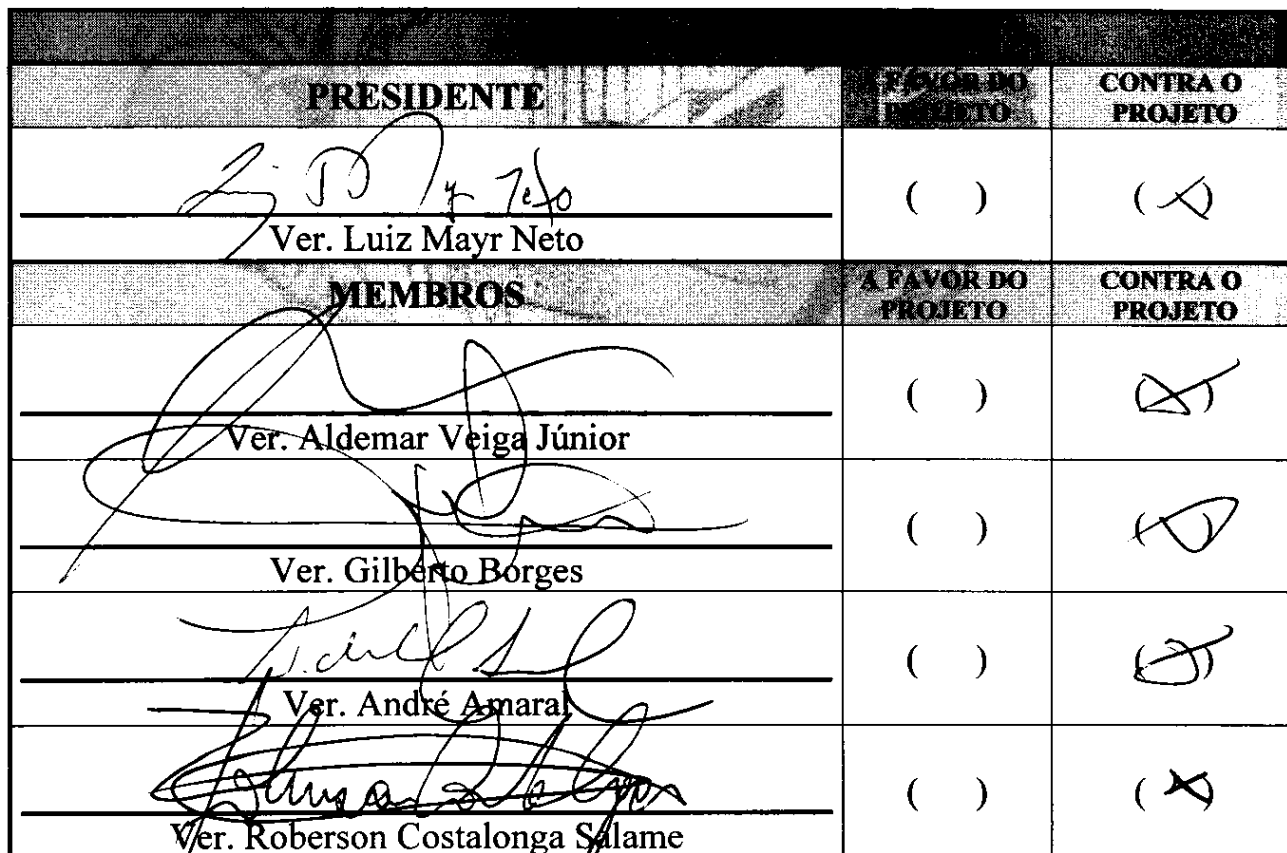 PRESIDENTE
A FAVOR DO PROJETO
CONTRA O PROJETO
( )
( X )
Ver. Luiz Mayr Neto
MEMBROS
A FAVOR DO PROJETO
CONTRA O PROJETO
( )
( X )
Ver. Aldemar Veiga Júnior
( )
( X )
Ver. Gilberto Borges
( )
( X )
Ver. André Amaral
( )
( X )
Ver. Roberson Costalonga Salame